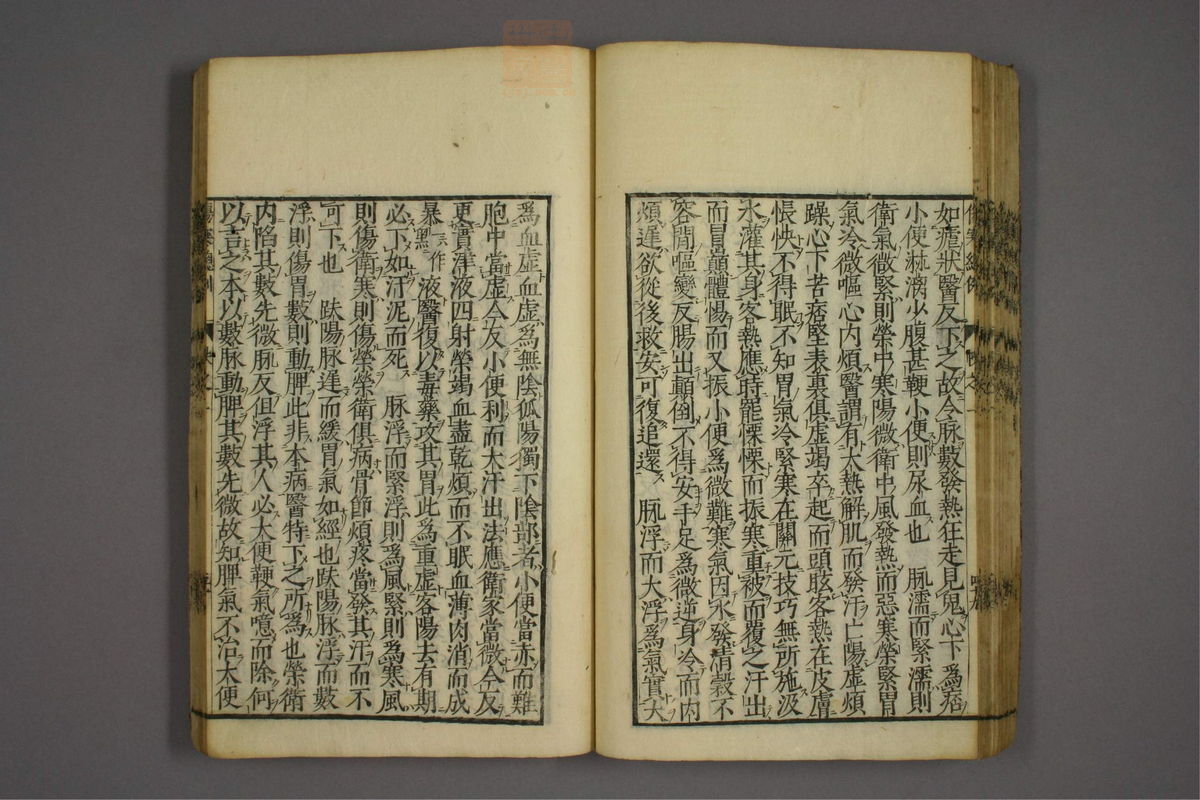 如瘧狀醫反下之故令脉數發熱狂走見鬼心下爲痞
小便淋瀝少腹甚鞕小便則尿血也 脉濡而緊濡則
衛氣微緊則榮中寒陽微衛中風發熱而惡寒榮緊胃
氣冷微嘔心内煩醫謂有大熱解肌而發汗亡陽虛煩
躁心下苦痞堅表裏俱虛竭卒起而頭眩客熱在皮膚
悵怏不得眠不知胃氣冷緊寒在關元技巧無所施汲
水灌其身客熱應時罷慄慄而振寒重被而覆之汗出
而冒巔體惕而又振小便爲微難寒氣因水發清穀不
容間嘔變反腸出顛倒不得安手足爲微逆身冷而内
煩遲欲從後救安可復追還 脉浮而大浮爲氣實大
爲血虛血虛爲無陰孤陽獨下陰部者小便當赤而難
胞中當虛今反小便利而大汗出法應衛家當微今反
更實津液四射榮竭血盡乾煩而不眠血薄肉消而成
暴液醫復以毒藥攻其胃此爲重虛客陽去有期
必下如汗泥而死 脉浮而緊浮則爲風緊則爲寒風
則傷衛寒則傷榮榮衛俱病骨節煩疼當發其汗而不
可下也 趺陽脉遲而緩胃氣如經也趺陽脉浮而數
浮則傷胃數則動脾此非本病醫特下之所爲也榮衛
内陷其數先微脉反但浮其人必大便鞕氣噫而除何
以言之本以數脉動脾其數先微故知脾氣不治大便